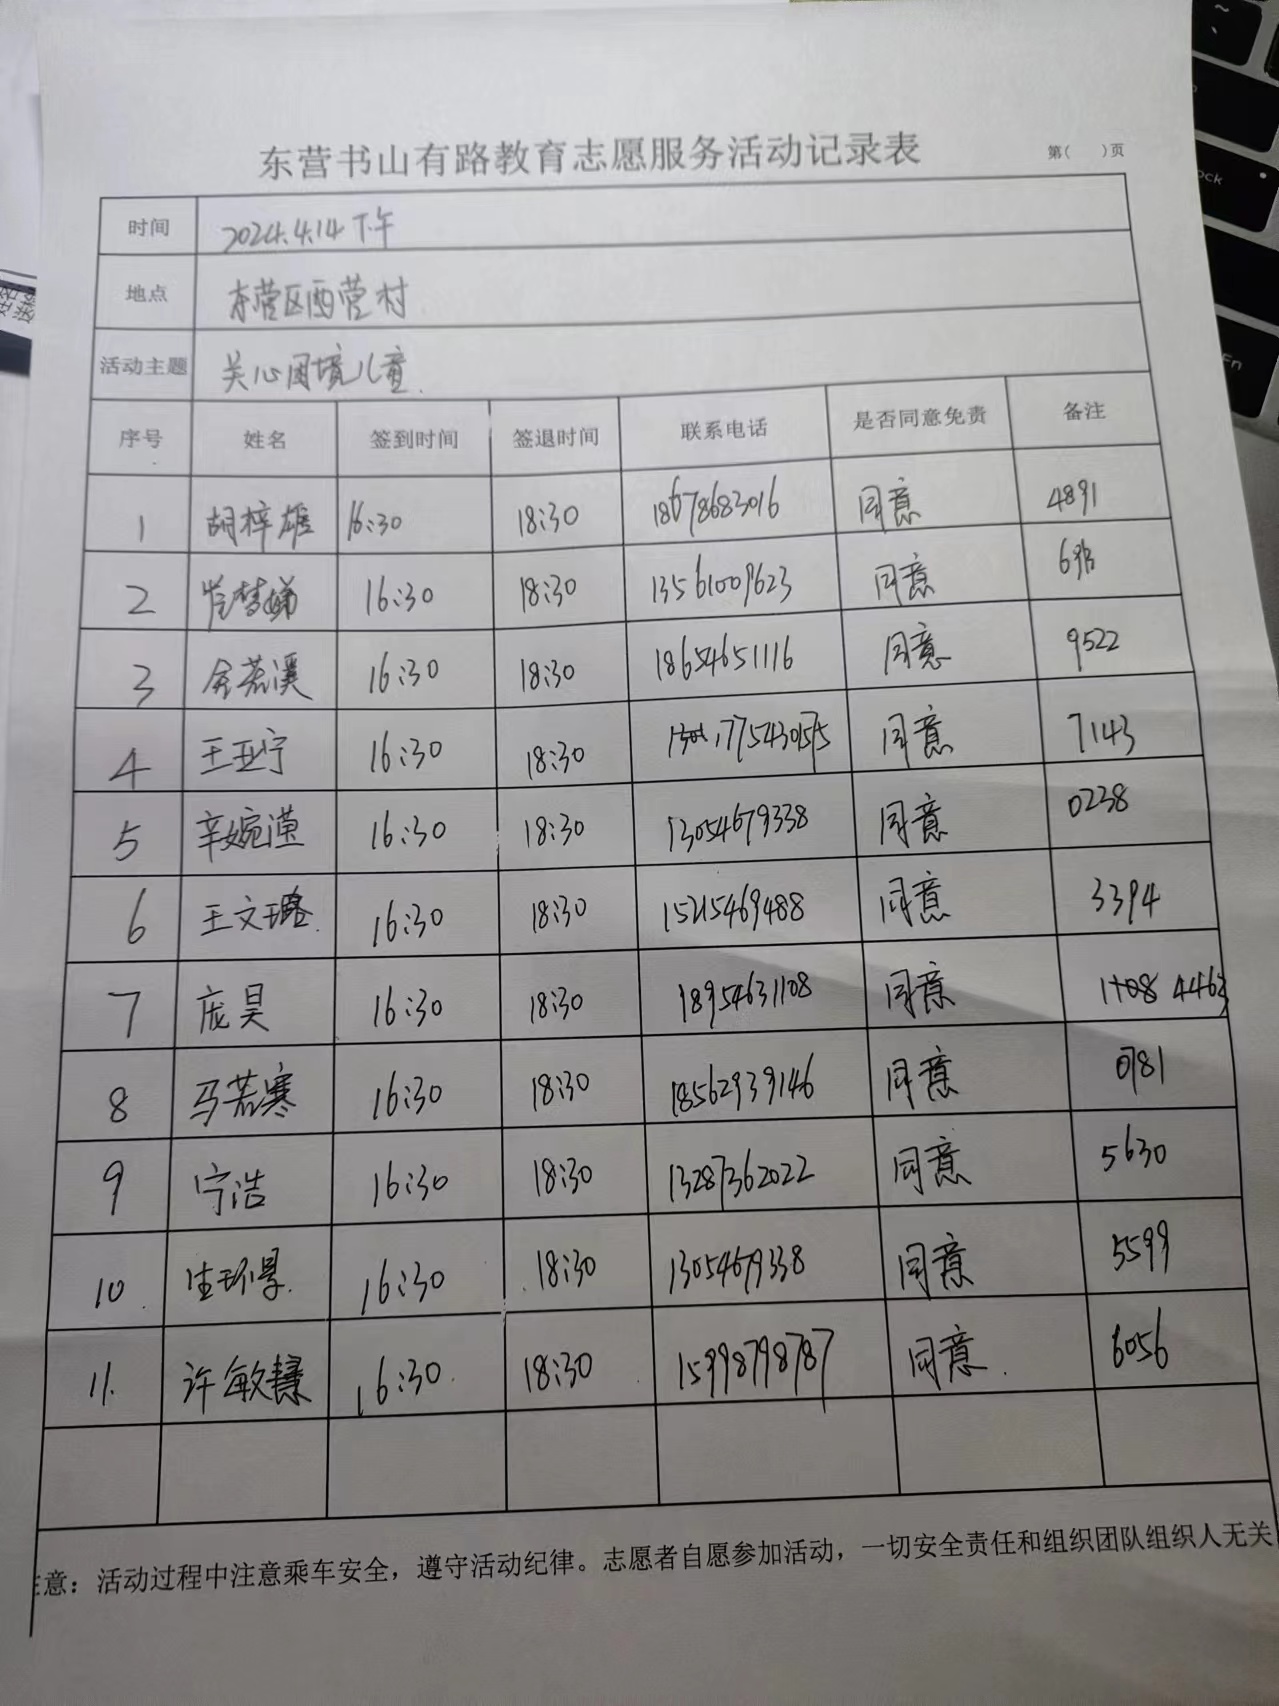 东营书山有路教育志愿服务活动记录表 第( )页
时间 2024.4.14下午
地点 东营区西营村
活动主题 关心困境儿童.
序号 姓名 签到时间 签退时间 联系电话 是否同意免责 备注
1 胡梓雄 16:30 18:30 18678683016 同意 4891
2 梦娣 16:30 18:30 13561009623 同意
3 若溪 16:30 18:30 18654651116 同意 9522
4 王亚宁 16:30 18:30 同意 7143
5 辛婉滢 16:30 18:30 13054679338 同意 0238
6 王文璐. 16:30 18:30 15215469488 同意 3394
7 庞昊 16:30 18:30 18954631108 同意 4463
8 马若寒 16:30 18:30 18562939146 同意 0781
9 宁浩 16:30 18:30 13287362022 同意 5630
10. 生环景. 16:30 18:30 13054679338 同意 5599
11. 许敏慧 16:30. 18:30 15998798787 同意. 6056
意：活动过程中注意乘车安全，遵守活动纪律。志愿者自愿参加活动，一切安全责任和组织团队组织人无关